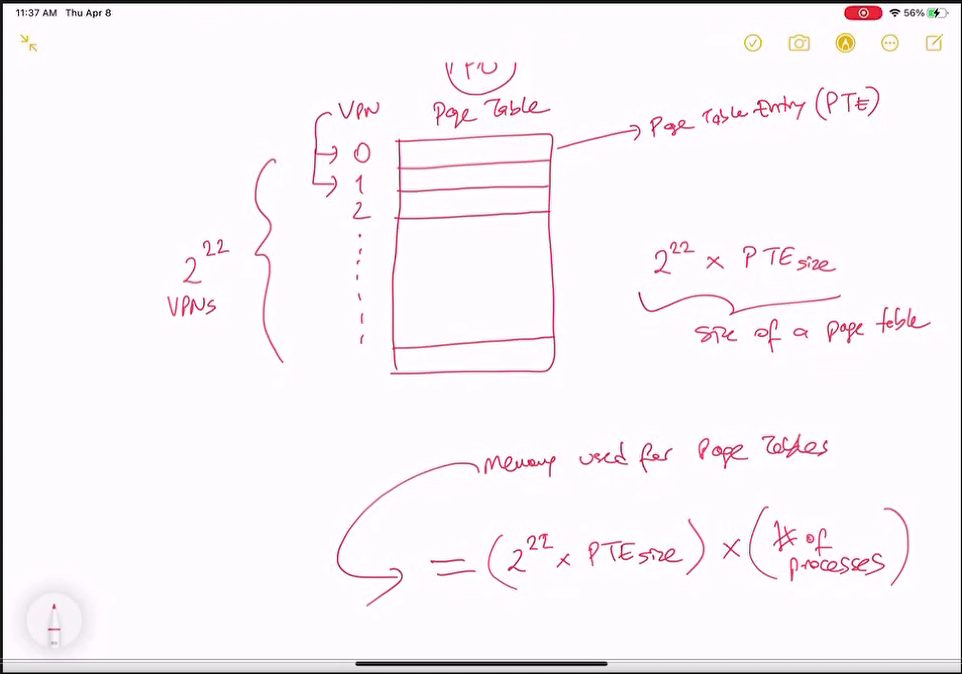 11:37 AM Thu Apr 8
56%
VPN
Page Table
Page Table Entry (PTE)
0
1
2
2^22
VPNs
2^22 x PTE size
size of a page table
Memory used for Page Tables
= (2^22 x PTE size) x (# of
processes)